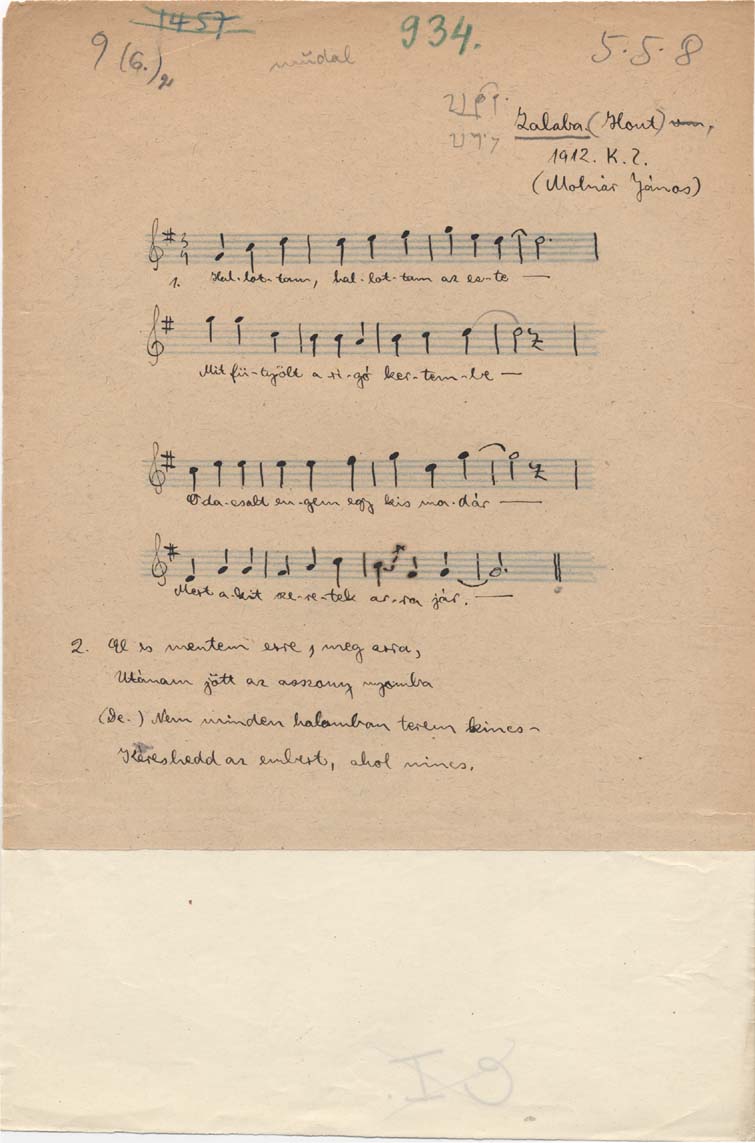 1457
9 (6.)
műdal
934.
5. 5. 8
Zalaba. (Hont)
1912. K. Z.
(Molnár János)
3 4
1. Hal-lot-tam, hal-lot-tam az es-te —
Mit fü-työlt a ri-gó ker-tem-be —
Oda-csalt en-gem egy kis ma-dár —
Mert a-kit sze-re-tek ar-ra jár. —
2. El is mentem erre, meg arra,
Utánam jött az asszony nyomba
(De.) Nem minden halomban terem kincs-
Kéreshedd az embert, ahol nincs.